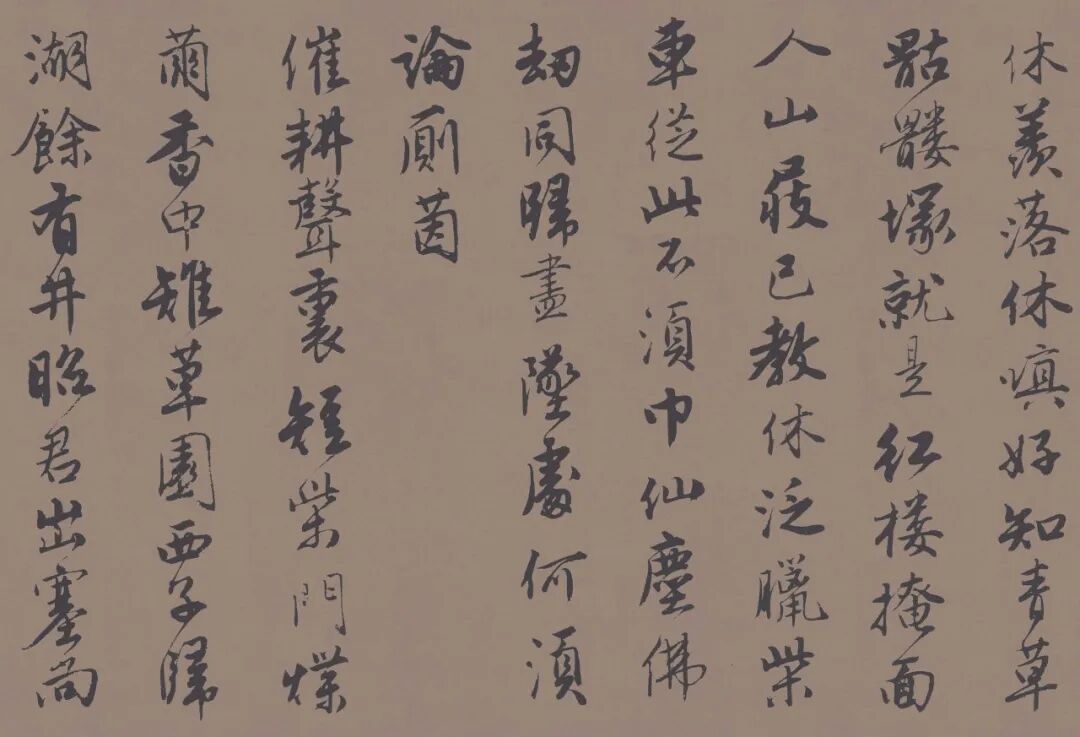 休羨落休嗔好知青草
骷髏塚就是紅樓掩面
人山屐已教休泛臘柴
車從此不須巾仙塵佛
劫同歸盡墜處何須
論厠茵
催耕聲裏短柴門煠
繭香中雉草園西子歸
湖餘有井昭君出塞尚